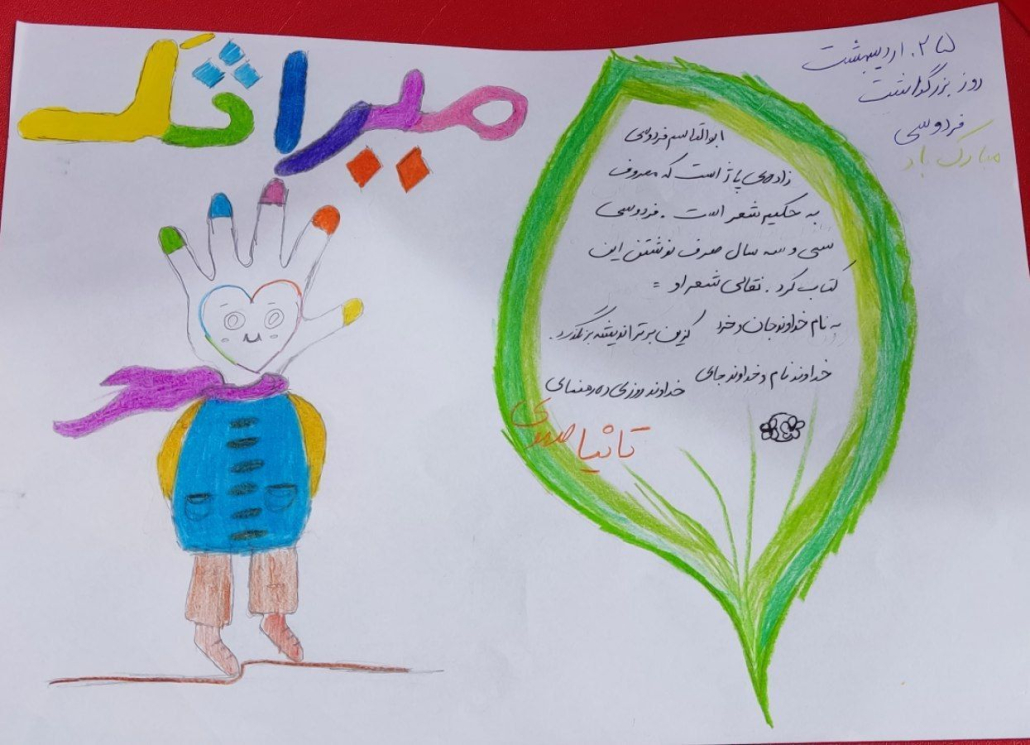 میراثک
۲۵. اردیبهشت
روز بزرگداشت
فردوسی
مبارک باد
ابوالقاسم فردوسی
زاده‌ی پاژ است که معروف
به حکیم شعر است. فردوسی
سی و سه سال صرف نوشتن این
کتاب کرد. نقالی شعر او =
به نام خداوند جان و خرد کزین برتر اندیشه برنگذرد.
خداوند نام و خداوند جای خداوند روزی ده رهنمای
تانیا